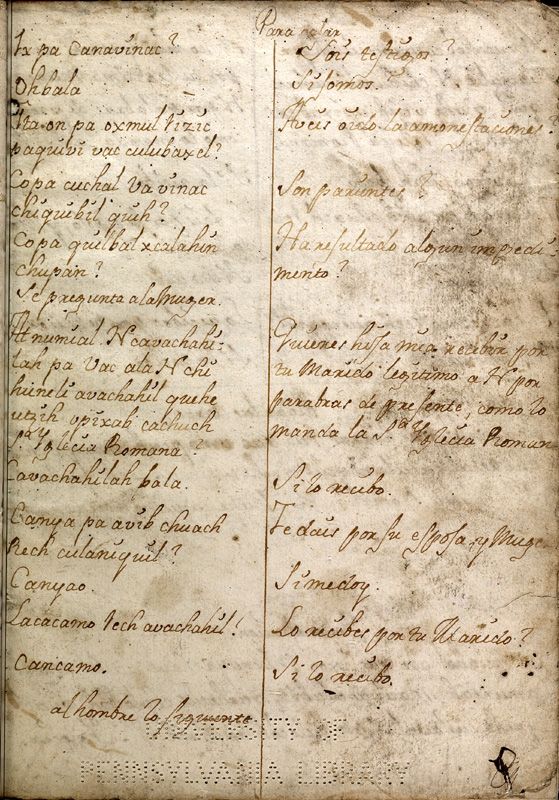 Para
Ix pa Canavinac?
Sois testigos?
Ohbala
Si somos.
Ita on pa oxmul tizic
Aveis oido la amonestaciones
paquivi vac culubaxel?
Copa cuchal va vinac
Son parientes?
chiquibil quih?
Copa quilbal xcalahin
Ha resultado algun impedi
chupan?
mento?
Se pregunta ala Muger.
At numial N cavachahi-
Quieres hija mia recibir por
lah pa vac ala N chi
tu Marido legitimo a N por
hineli avachahil quehe
parabras de presente, como lo
utzih vpixab cachuch
manda la Sta Yglecia Roman
Sta Yglecia Romana?
Cavachahilah bala.
Si lo recibo.
Canya pa avib chuach
Te dais por su esposa, y Muge
Rech culaniquil?
Canyao.
Si me doy.
Lacacamo tech avachahil?
Lo recibes por tu Marido?
Cancamo.
Si lo recibo.
al hombre lo siguiente
UNIVERSITY OF
PENNSYLVANIA LIBRARY